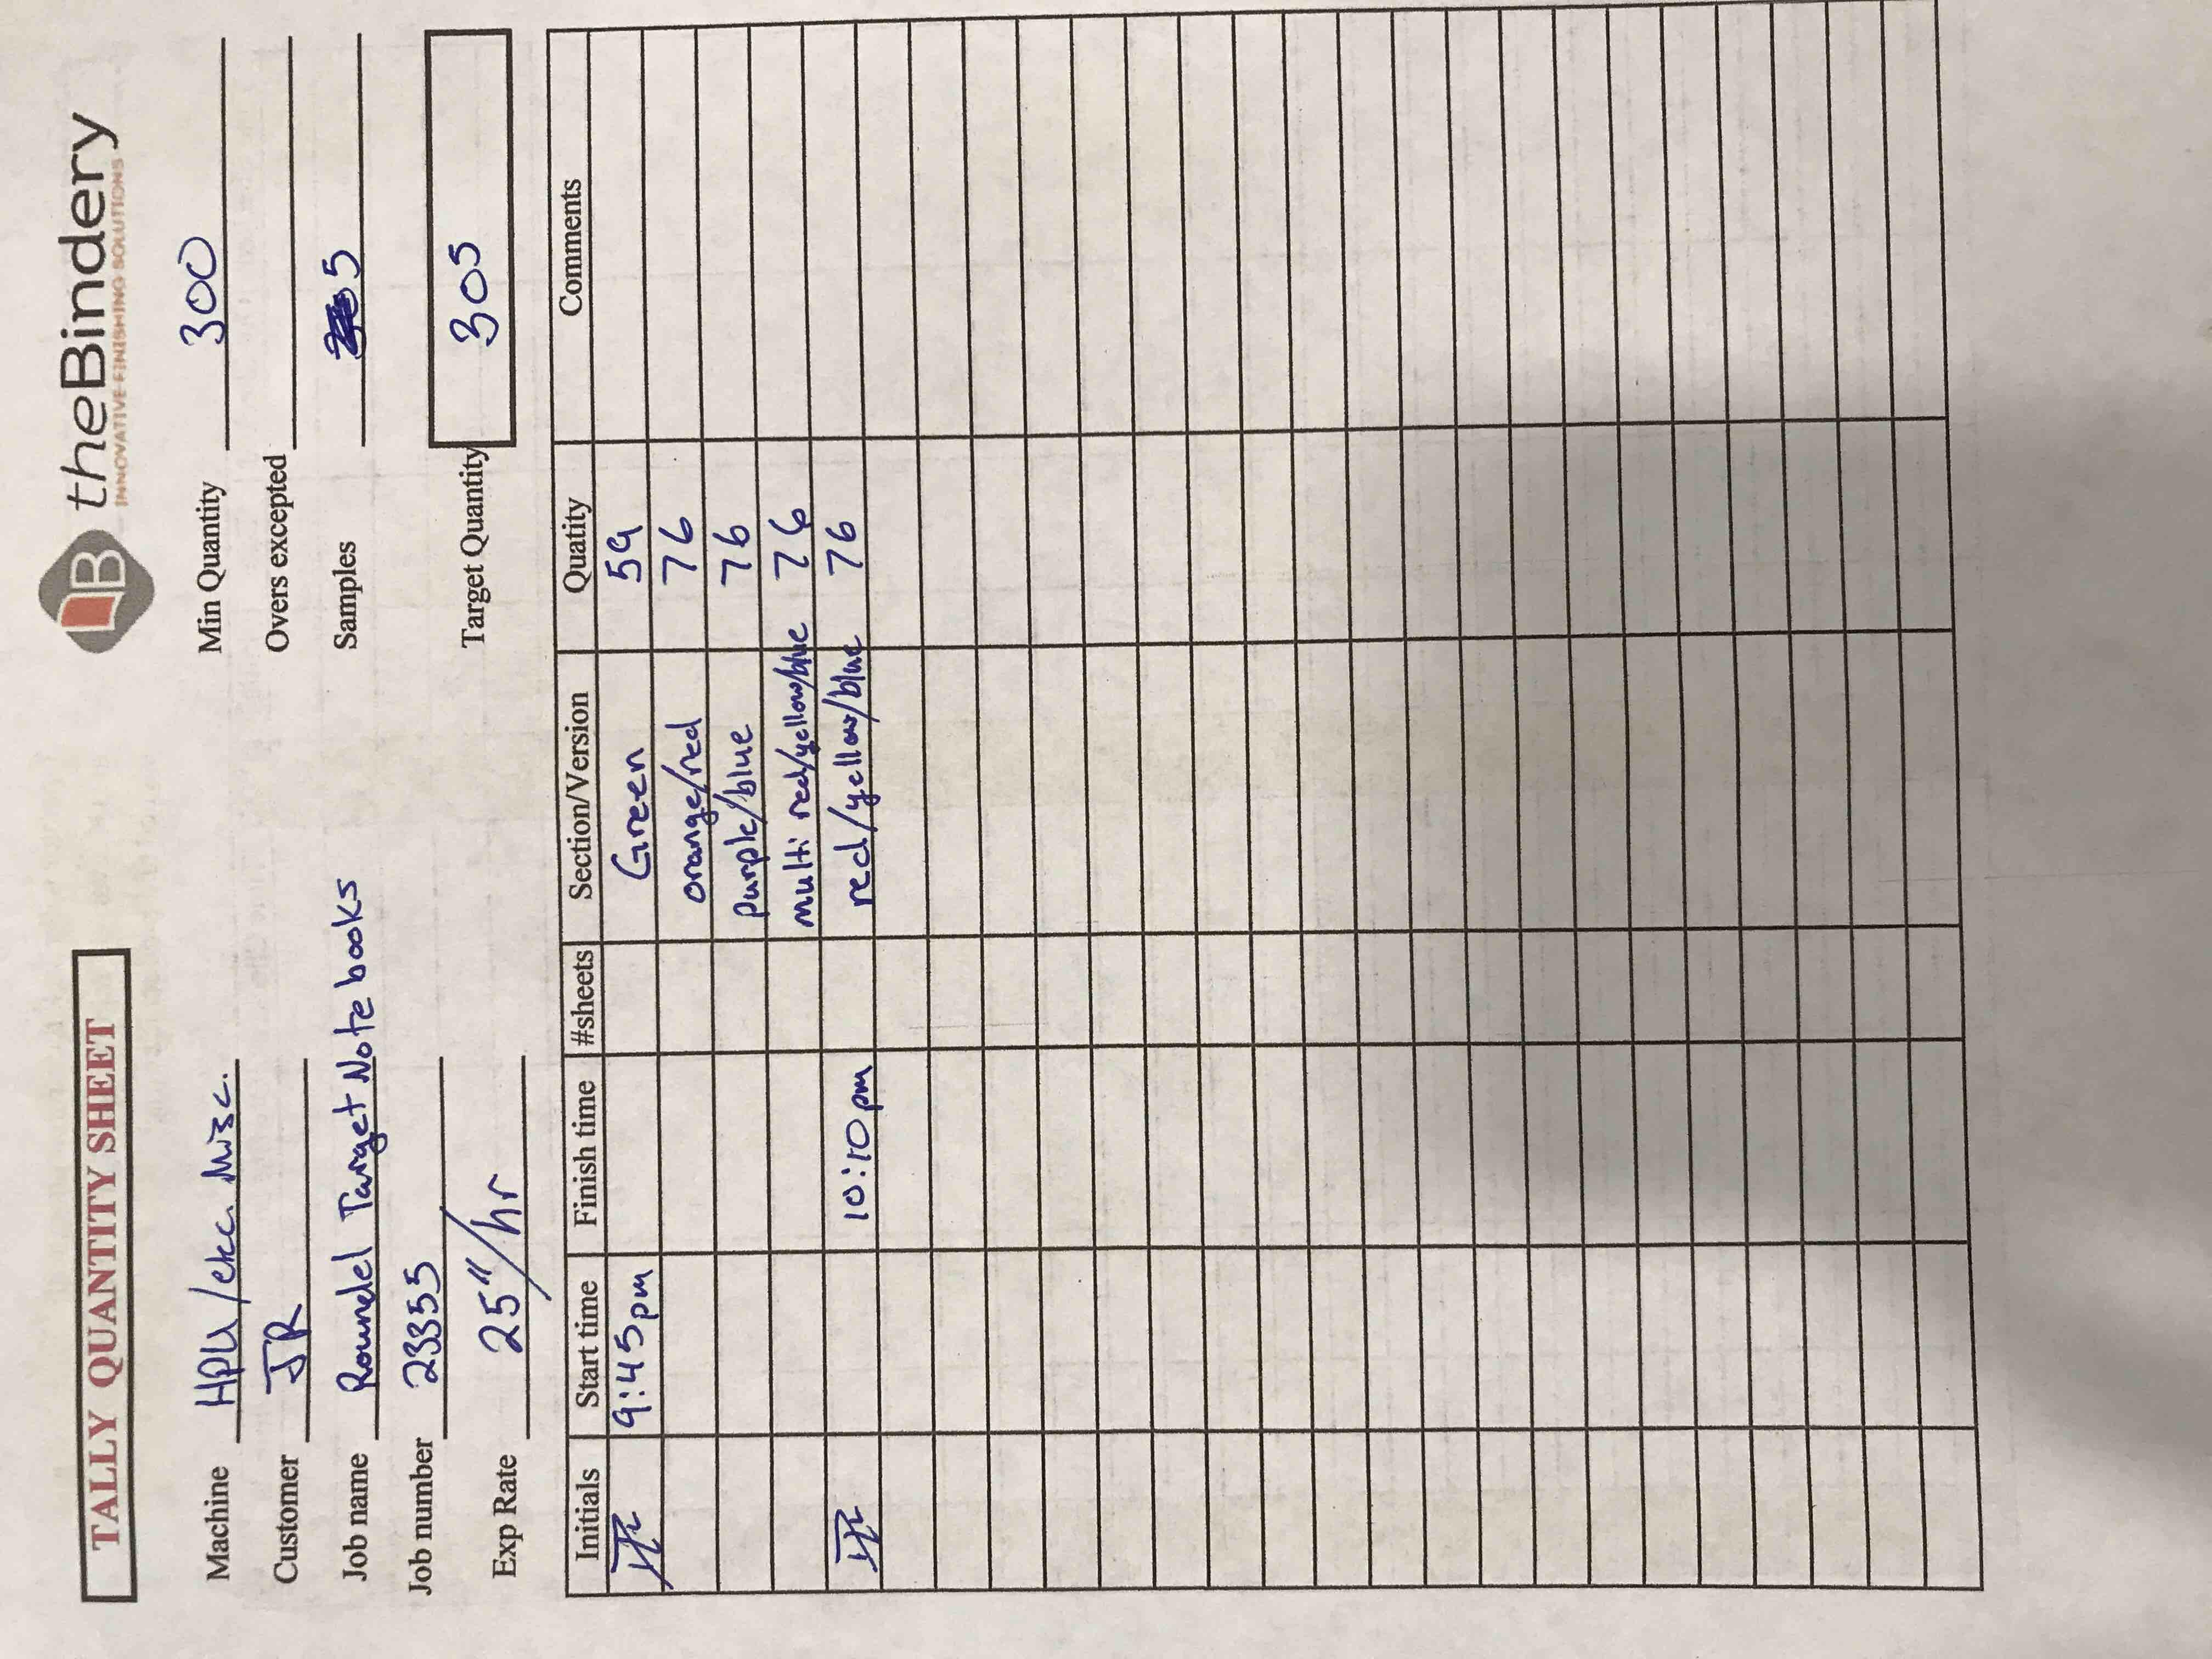 TALLY QUANTITY SHEET
theBindery
INNOVATIVE FINISHING SOLUTIONS
Machine HPU/etc. Misc.
Min Quantity 300
Customer JR
Overs excepted
Job name Roundel Target Notebooks
Samples 5
Job number 23355
Exp Rate 25"/hr
Target Quantity 305
Initials Start time Finish time #sheets Section/Version Quatity Comments
9:45pm Green 59
orange/red 76
purple/blue 76
multi red/yellow/blue 76
10:10pm red/yellow/blue 76